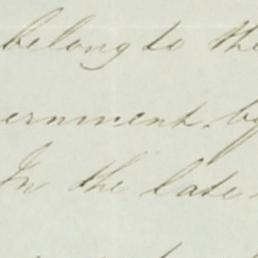 belong to the
ernment by
In the late